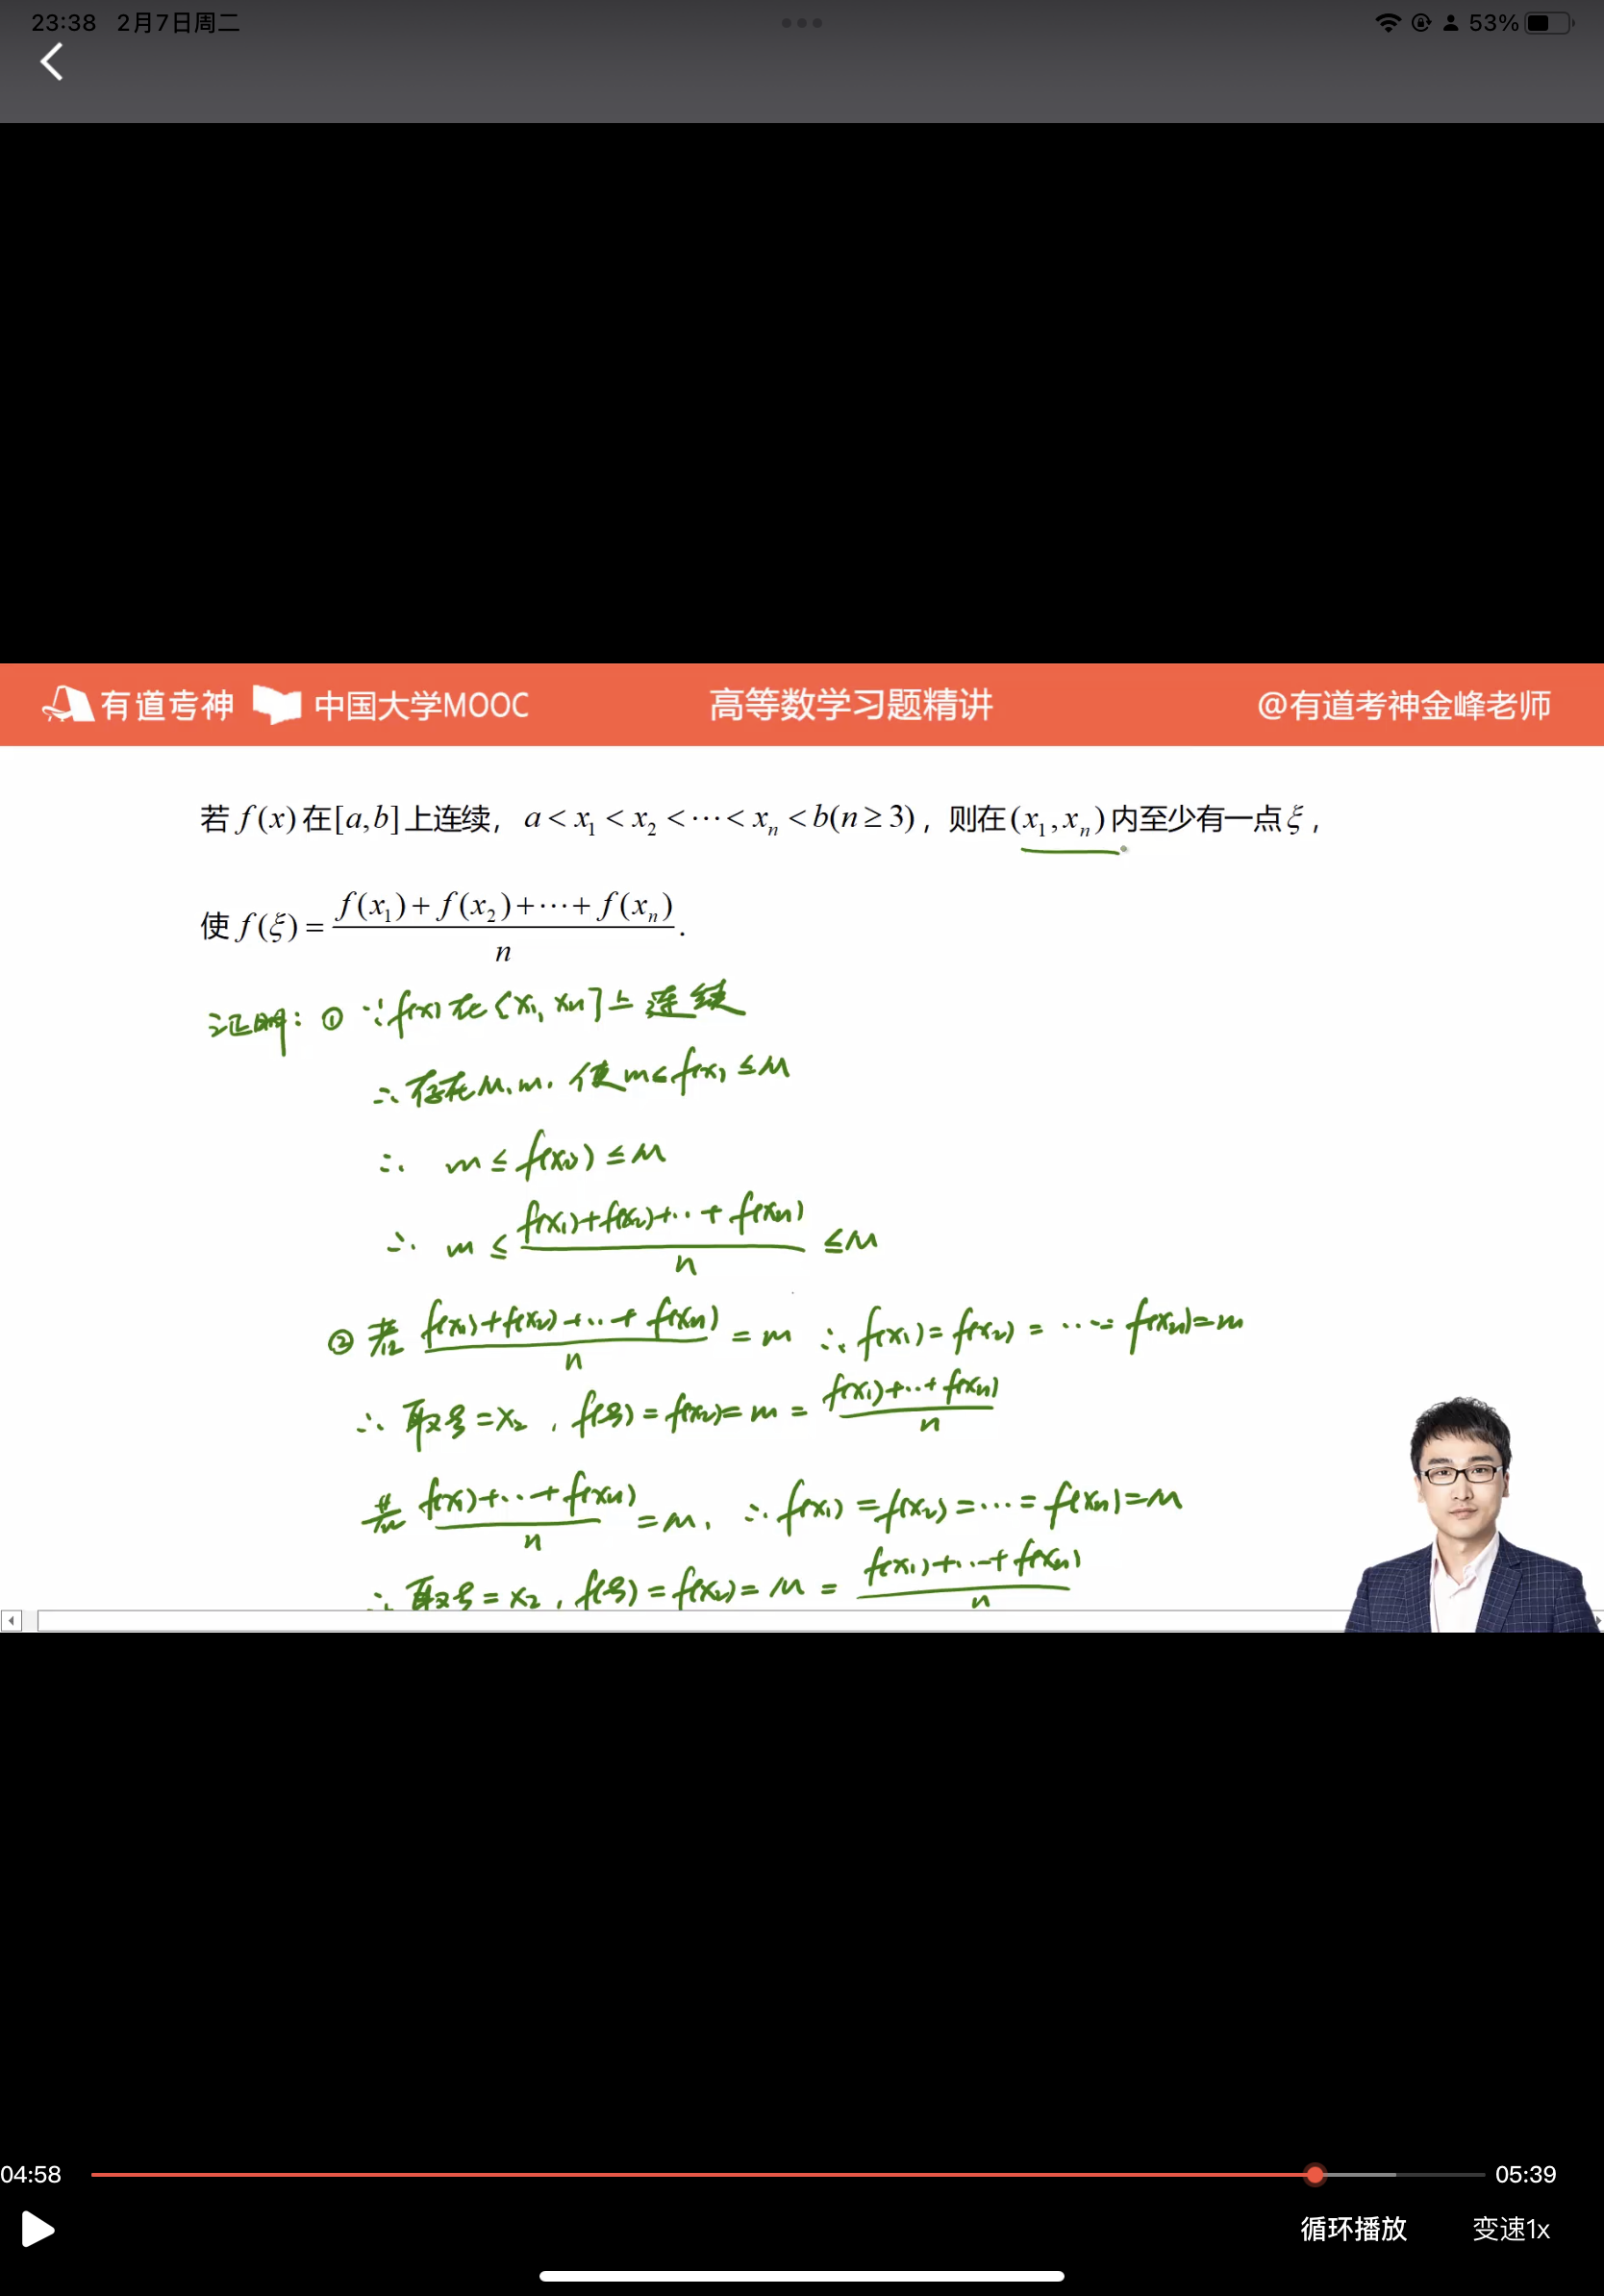 23:38 2月7日周二 53%
有道考神 中国大学MOOC 高等数学习题精讲 @有道考神金峰老师
若 f(x) 在[a,b]上连续， a < x₁ < x₂ < ⋯ < xₙ < b(n ≥ 3)，则在(x₁, xₙ)内至少有一点 ξ ，
使 f(ξ) = (f(x₁) + f(x₂) + ⋯ + f(xₙ))/n .
证明: ① ∵ f(x) 在 [x₁, xₙ] 上连续
∴ 存在M、m. 使 m ≤ f(x) ≤ M
∴ m ≤ f(xᵢ) ≤ M
∴ m ≤ (f(x₁)+f(x₂)+⋯+f(xₙ))/n ≤ M
② 若 (f(x₁)+f(x₂)+⋯+f(xₙ))/n = m ∴ f(x₁) = f(x₂) = ⋯ = f(xₙ) = m
∴ 取ξ = x₂ , f(ξ) = f(x₂) = m = (f(x₁)+⋯+f(xₙ))/n
若 (f(x₁)+⋯+f(xₙ))/n = M, ∴ f(x₁) = f(x₂) = ⋯ = f(xₙ) = M
∴ 取ξ = x₂ , f(ξ) = f(x₂) = M = (f(x₁)+⋯+f(xₙ))/n
04:58 05:39
循环播放 变速1x